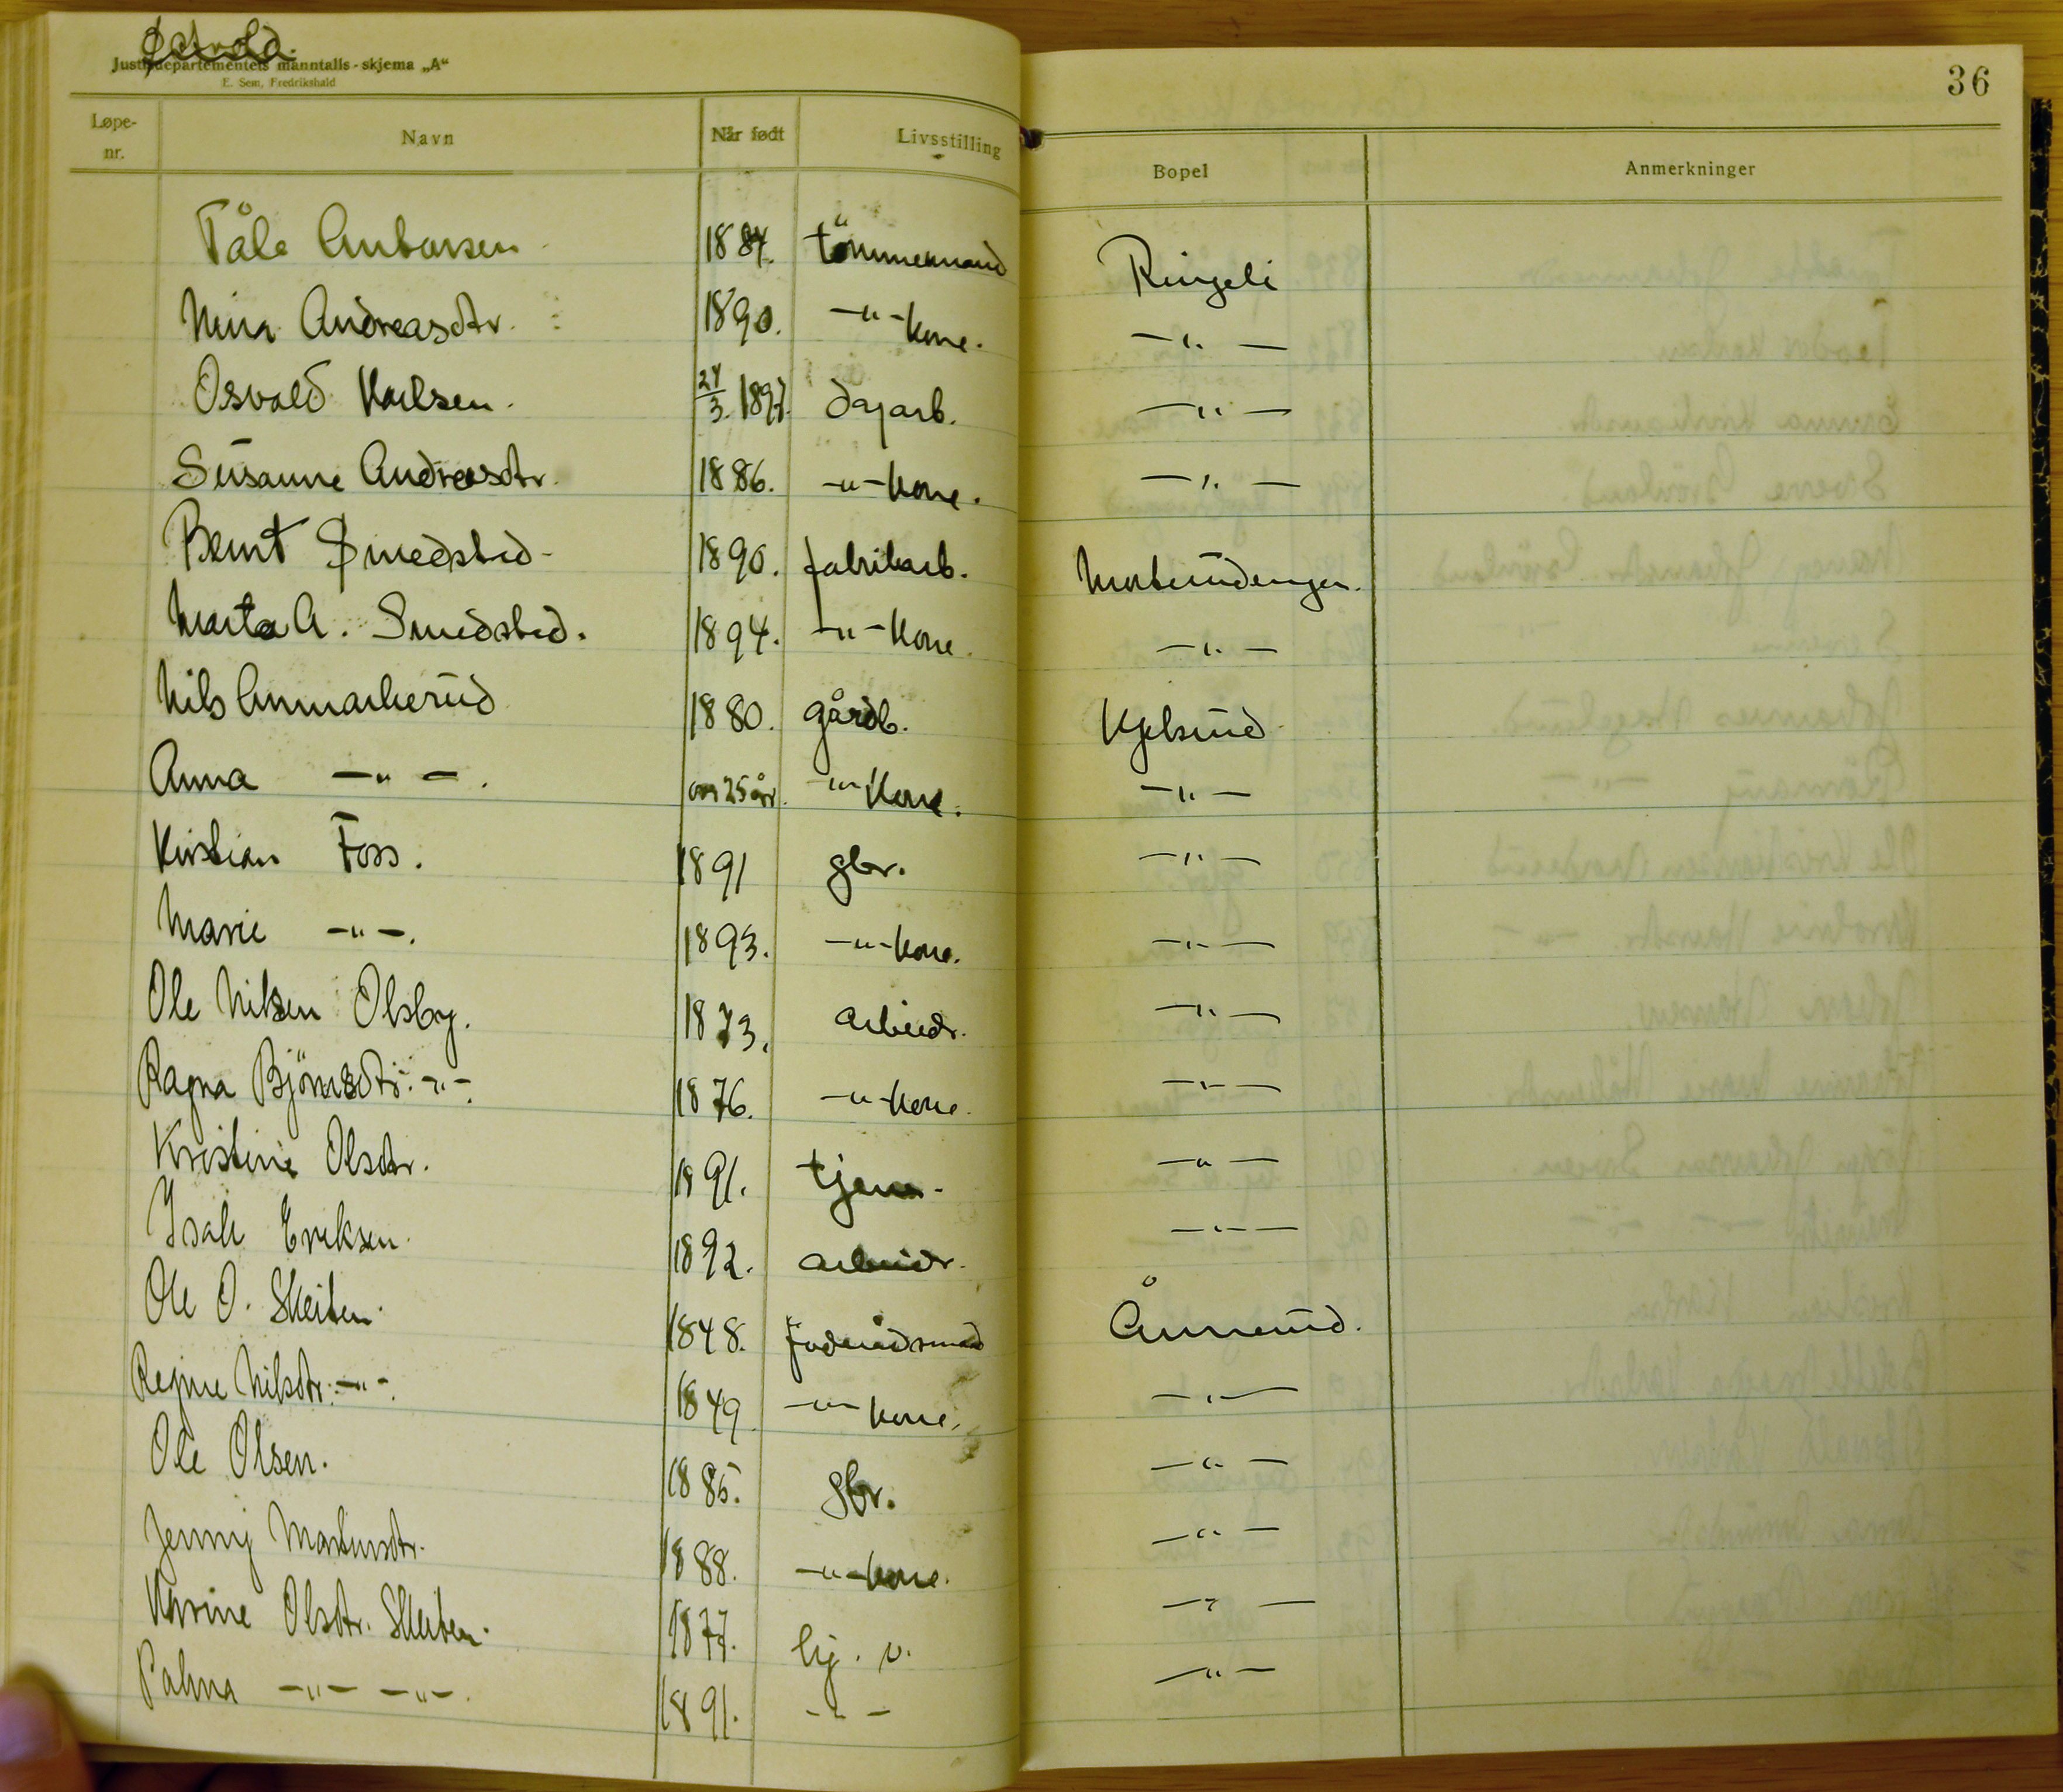 Østvold.
Justisdepartementets manntalls-skjema „A“
E. Sem, Fredrikshald
36
Løpe-nr. Navn Når født Livsstilling Bopel Anmerkninger
Tåle Antonsen 1884. tömmermand Ringeli
Nina Andreasdtr. 1890. -"- kone. -"-
Osvald Karlsen. 24/3. 1897. dagarb. -"-
Susanne Andreasdtr. 1886. -"- kone. -"-
Bernt Smedsted 1890. fabrikarb.
Marta A. Smedsted. 1894. -"- kone. -"-
Nils Ammarkerud 1880. gårdb. Kjelsrud
Anna -"-. om 25 år. -"- kone. -"-
Kristian Foss. 1891 gbr. -"-
Marie -"-. 1893. -"- kone. -"-
Ole Nilsen Olsby. 1873. arbeidr. -"-
Ragna Björnsdtr. -"-. 1876. -"- kone. -"-
Kristine Olsdtr. 1891. tjen. -"-
Isak Eriksen. 1892. arbeidr. -"-
Ole O. Skeiten. 1848. foderådsmand Ånnerud.
Regine Nilsdtr. -"-. 1849 -"- kone. -"-
Ole Olsen. 1885. gbr. -"-
Jenny Martinsdtr. 1888. -"- kone. -"-
Karine Olsdtr. Skeiten. 1877. hj. v. -"-
Palma -"- -"-. 1891. -"- -"-